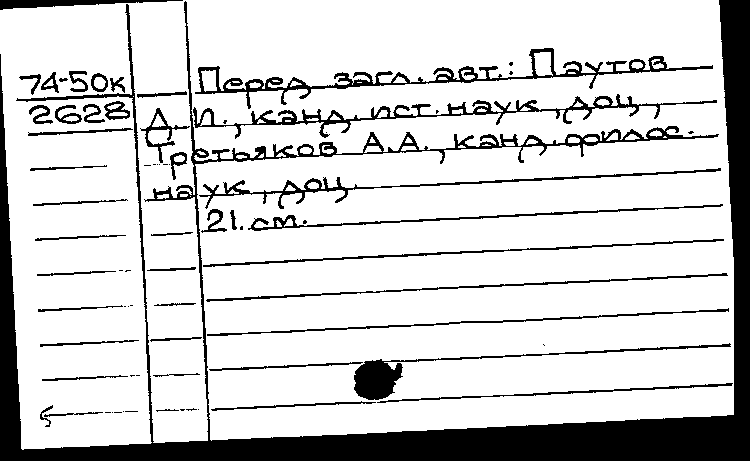 74-50к Перед загл. авт.: Паутов
2628 Д.И., канд. ист. наук, доц.,
Третьяков А.А., канд. филос.
наук, доц.
21. см.